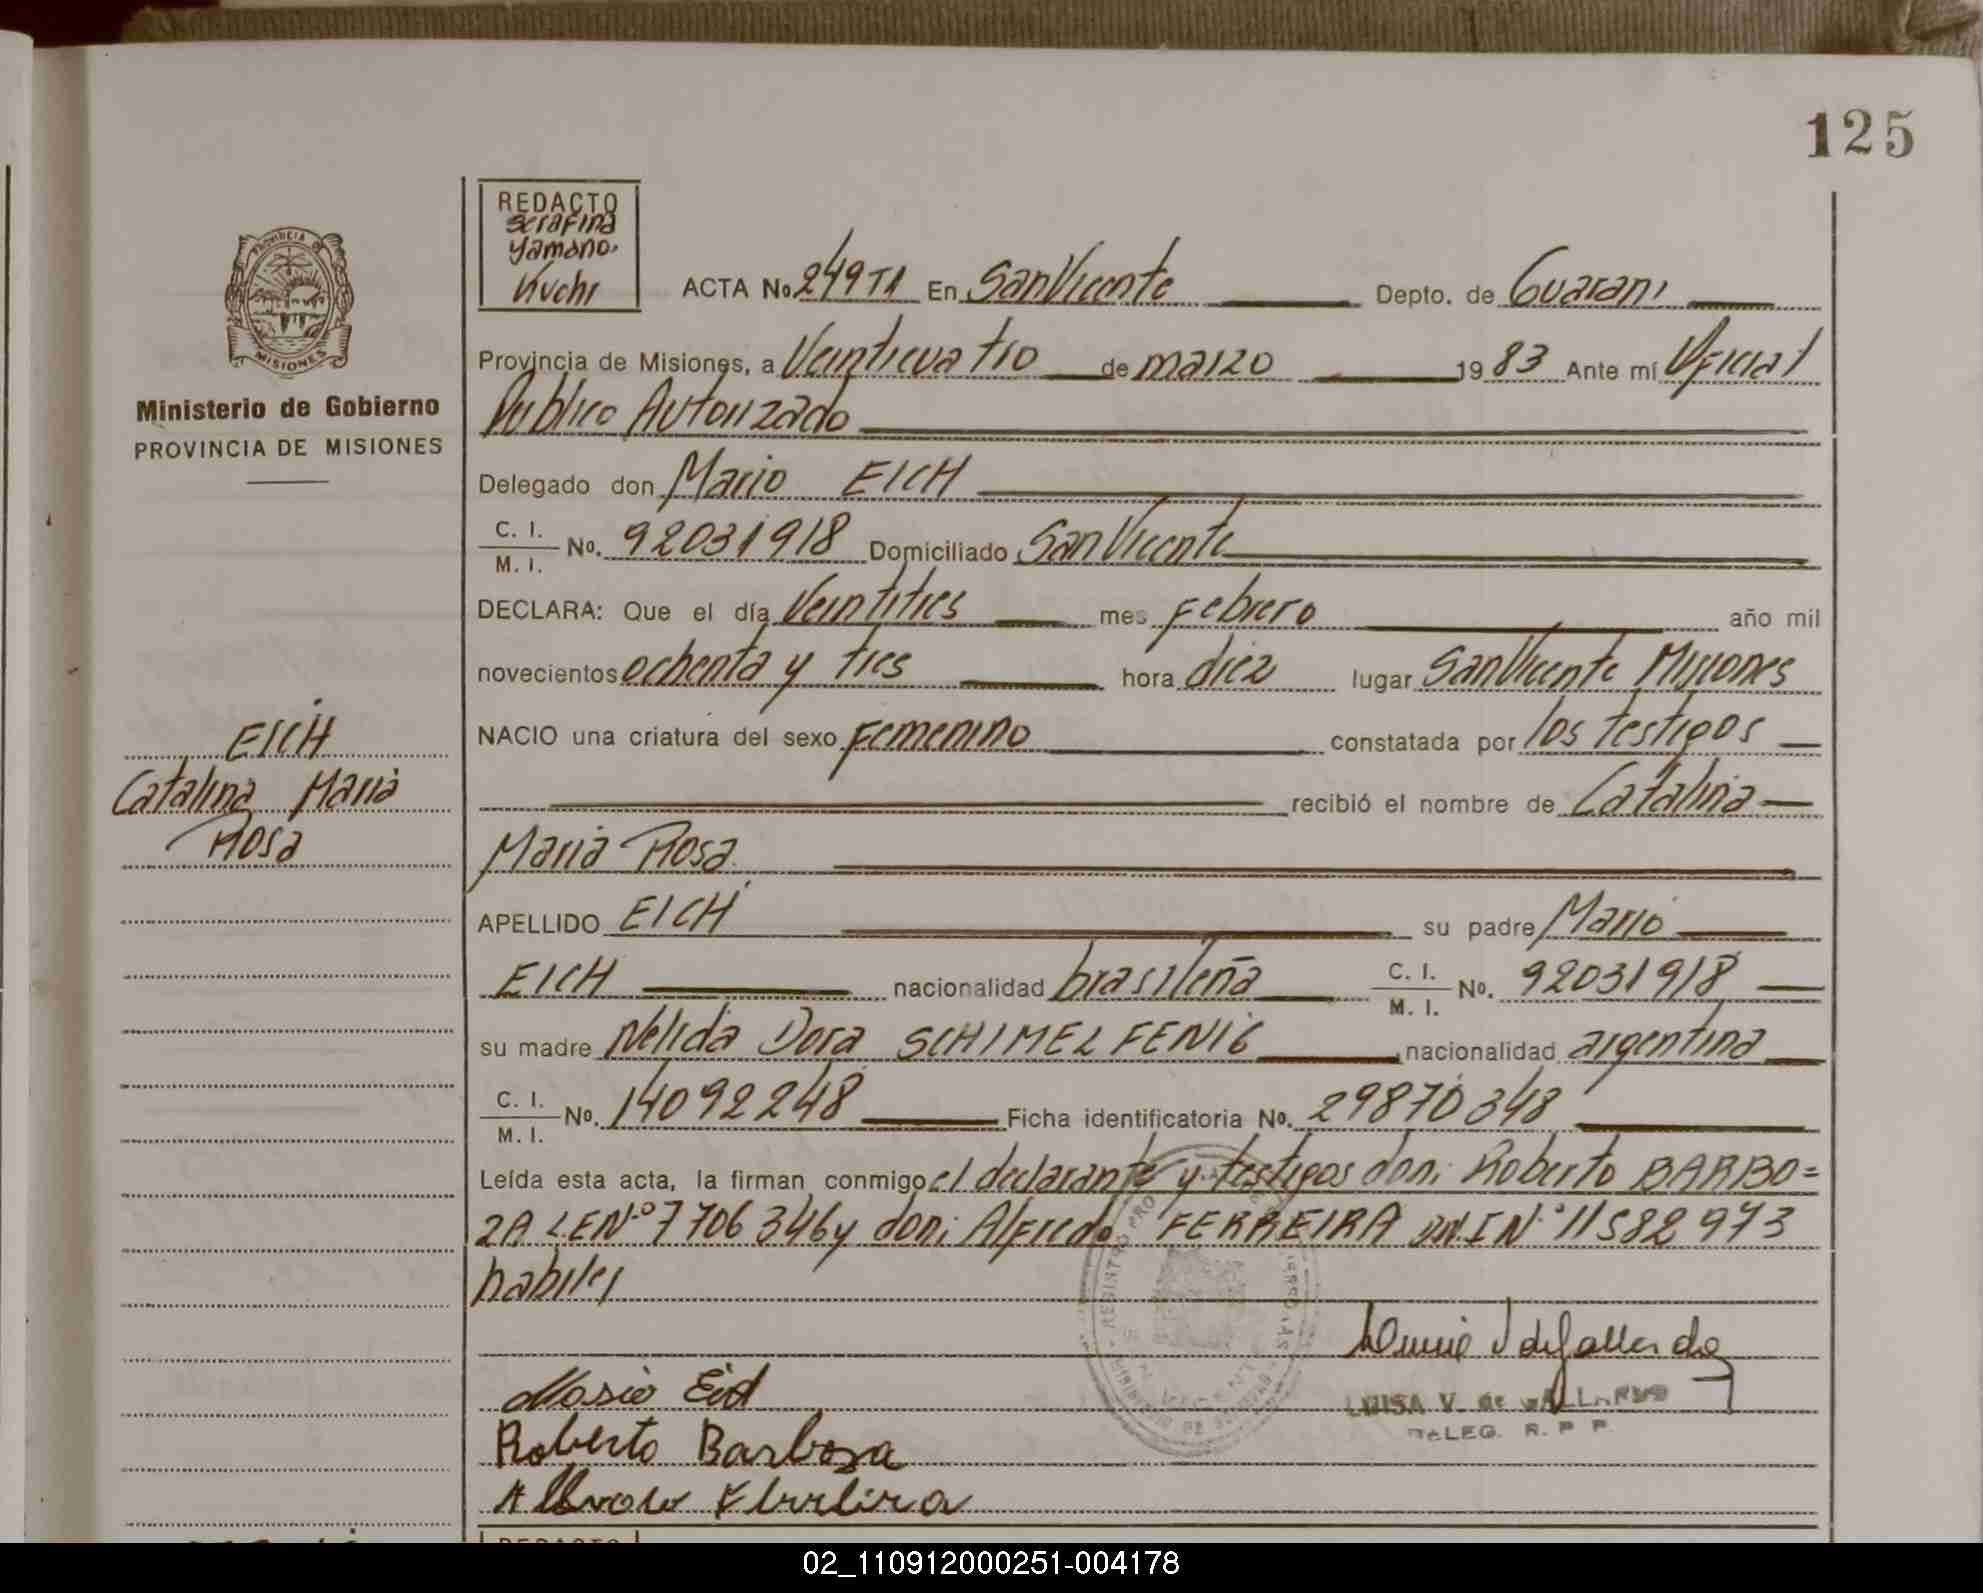 125
REDACTO
Serafina
Yamano.
Kuchi
ACTA No 249 T1 En San Vicente Depto. de Guarani
Provincia de Misiones, a Veinticuatro de marzo 1983 Ante mí Oficial
Publico Autorizado
Delegado don Mario EICH
C. I.
M. I. No. 92031918 Domiciliado San Vicente
DECLARA: Que el día Veintitres mes Febrero año mil
novecientos ochenta y tres hora diez lugar San Vicente Misiones
NACIO una criatura del sexo Femenino constatada por los testigos
recibió el nombre de Catalina
Maria Rosa
APELLIDO EICH su padre Mario
EICH nacionalidad brasileña C. I.
M. I. No. 92031918
su madre Nelida Dora SCHIMELFENIG nacionalidad argentina
C. I.
M. I. No. 14092248 Ficha identificatoria No. 29870348
Leída esta acta, la firman conmigo el declarante y testigos don: Roberto BARBO=
ZA LE Nº 7706346 y don: Alfredo FERREIRA DN.I Nº 11582973
habiles
Mario Eich
Roberto Barboza
LUISA V. de GALLARDO
DELEG. R. P. P.
PROVINCIA
MISIONES
Ministerio de Gobierno
PROVINCIA DE MISIONES
EICH
Catalina Maria
Rosa
REDACTO
02_110912000251-004178